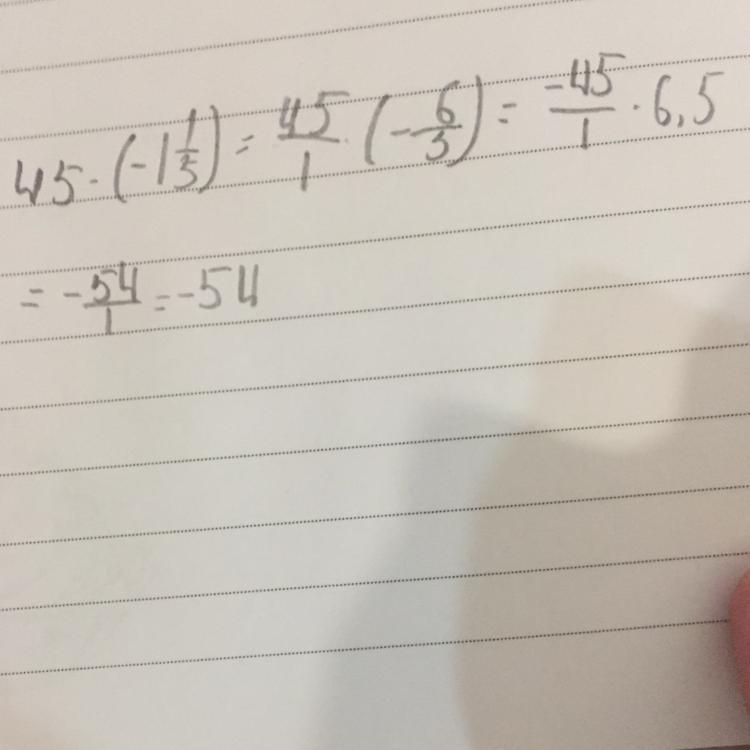 45 · (-1 1/5) = 45/1 · (-6/5) = -45/1 · 6,5
= -54/1 = -54